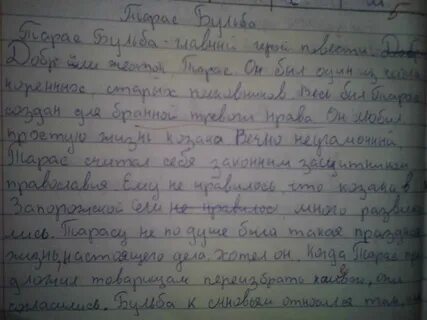 5
Тарас Бульба
Тарас Бульба - главный герой повести.
Добр или жесток, Тарас. Он был один из числа
коренных, старых полковников. Весь был Тарас
создан для бранной тревоги нрава. Он любил
простую жизнь козака. Вечно неугомонный
Тарас считал себя законным защитником
православия. Ему не нравилось, что козаки в
Запорожской Сечи не нравилос много развле
лись. Тарасу не по душе была такая праздная
жизнь, настоящего дела хотел он. Когда Тарас пре
дложил товарищам переизбрать они
согласились. Бульба к сыновьям относился так,